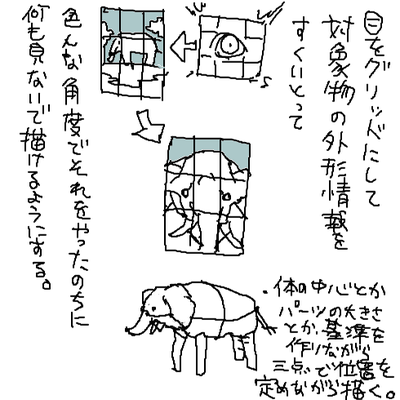 目をグリッドにして
対象物の外形情報を
すくいとって
色んな角度でそれをやったのちに
何も見ないで描けるようにする。
・体の中心とか
パーツの大きさ
とか、基準を
作りながら
三点で位置を
定めながら描く。